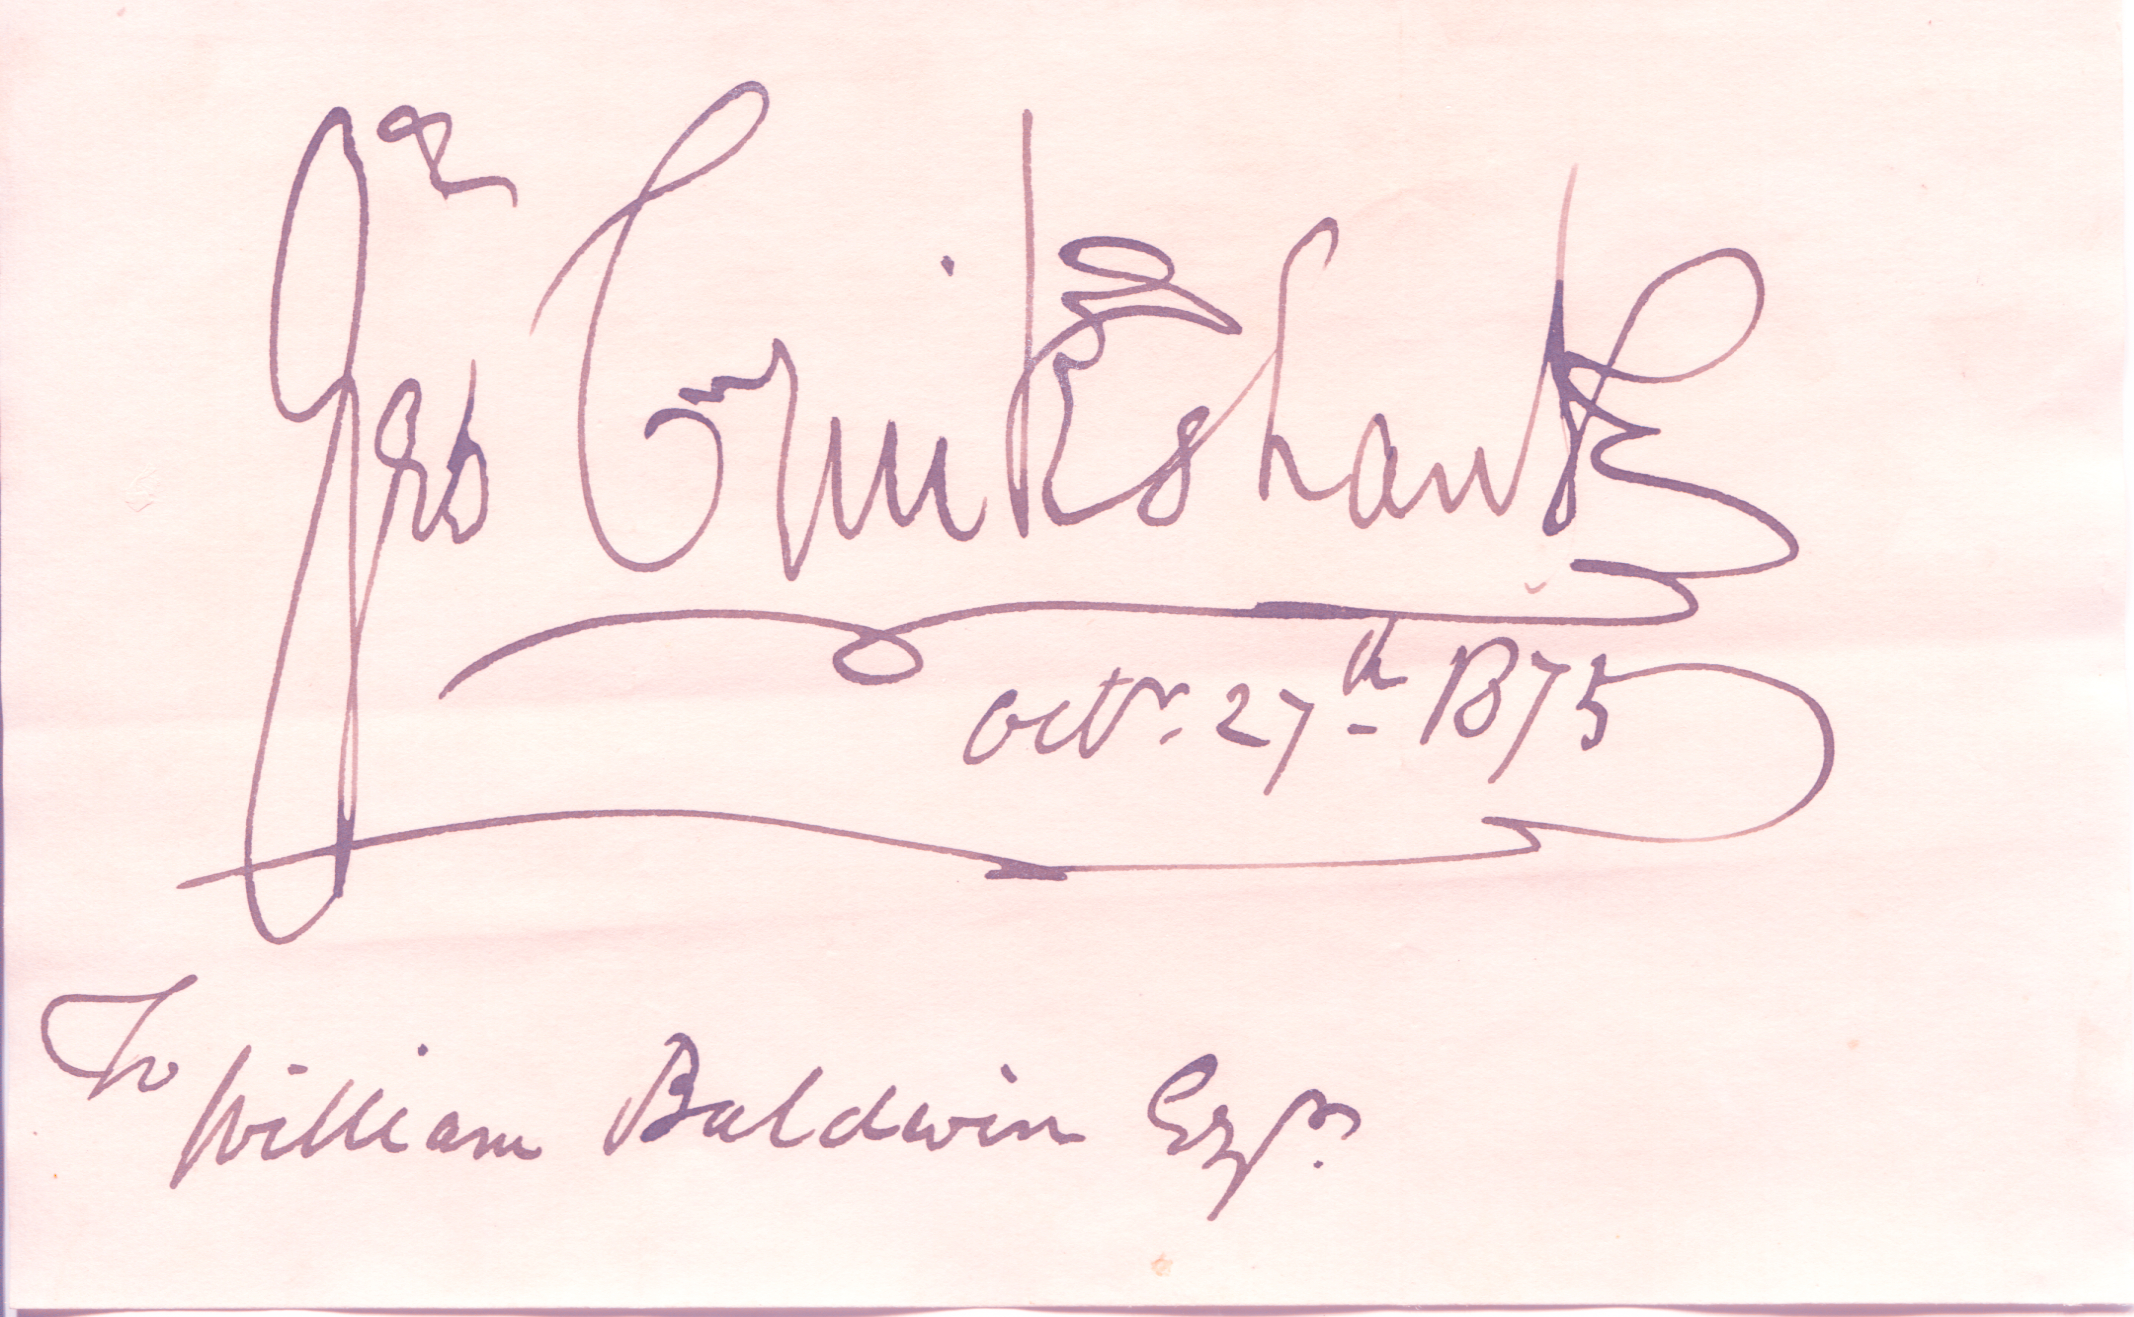 Geo Cruikshank
Octr. 27th 1875
To William Baldwin Esqr.